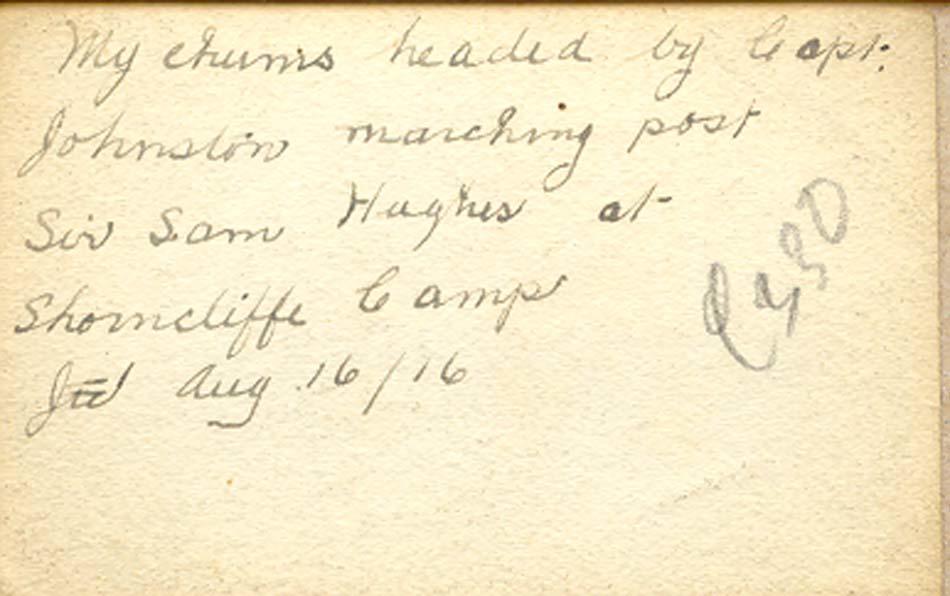 My chums headed by Capt.
Johnston marching post
Sir Sam Hughes at
Shorncliffe Camp
Aug 16/16